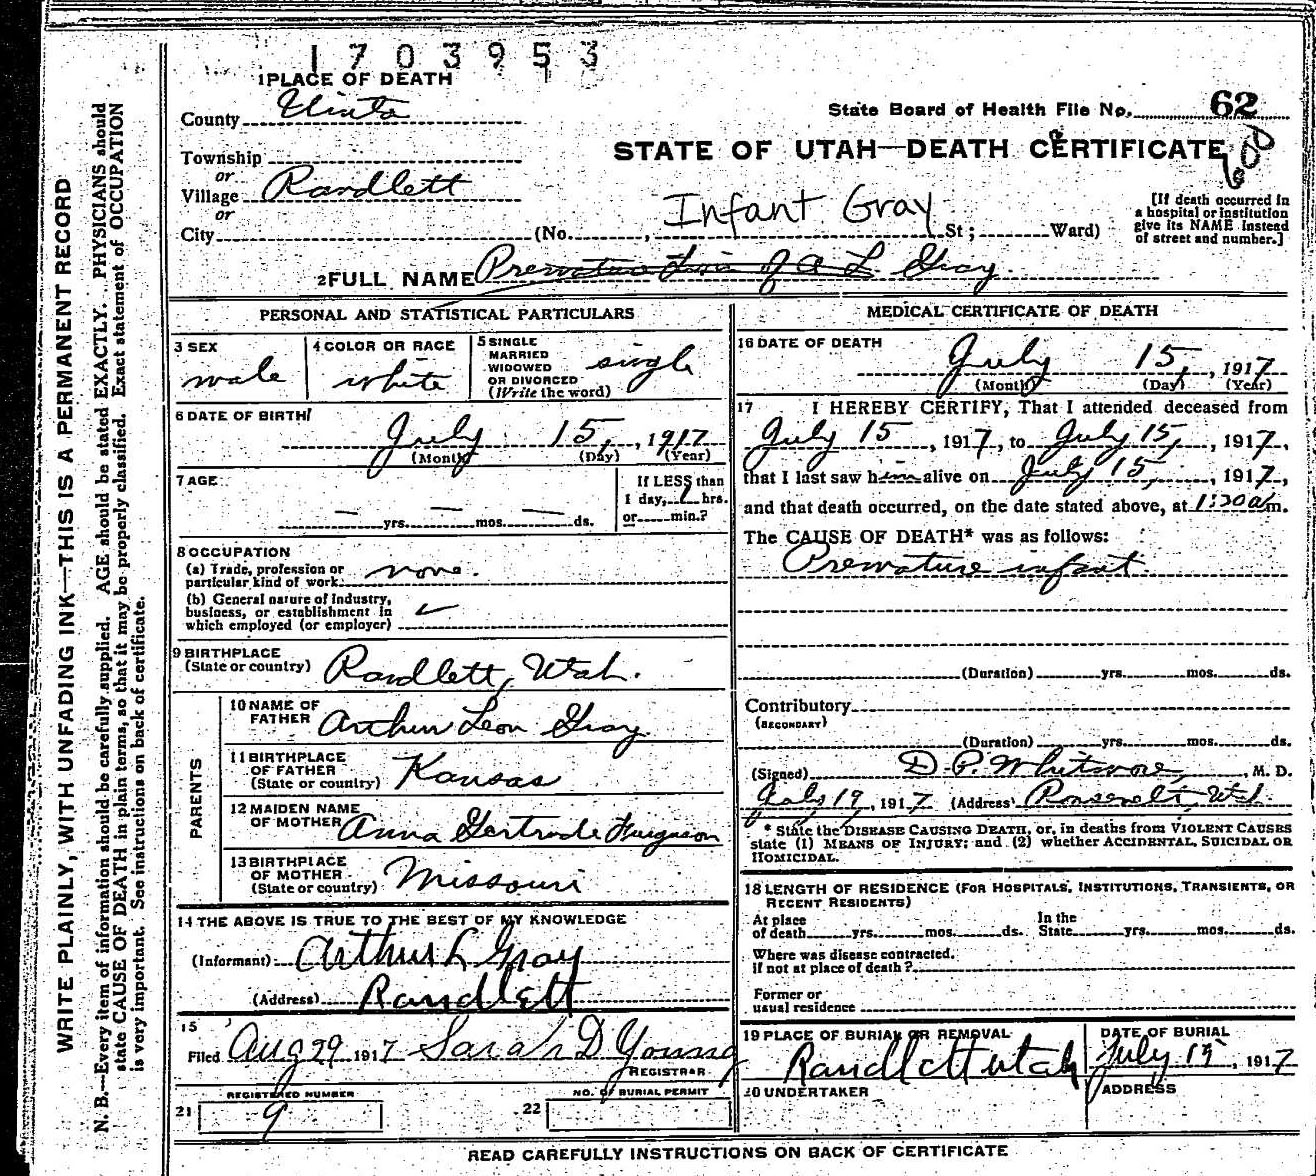 1703953
1 PLACE OF DEATH
County Uinta
State Board of Health File No. 62
STATE OF UTAH—DEATH CERTIFICATE
Township
or
Village Randlett
or
City (No. , Infant Gray St; Ward)
[If death occurred in
a hospital or institution
give its NAME instead
of street and number.]
2 FULL NAME Premature of A L Gray
PERSONAL AND STATISTICAL PARTICULARS
3 SEX
male
4 COLOR OR RACE
white
5 SINGLE
MARRIED
WIDOWED
OR DIVORCED
(Write the word)
single
6 DATE OF BIRTH
July 15, 1917
(Month) (Day) (Year)
7 AGE
— yrs. — mos. — ds.
If LESS than
1 day, hrs.
or min.?
8 OCCUPATION
(a) Trade, profession or
particular kind of work none.
(b) General nature of industry,
business, or establishment in
which employed (or employer) ✓
9 BIRTHPLACE
(State or country) Randlett, Utah.
PARENTS
10 NAME OF
FATHER Arthur Leon Gray
11 BIRTHPLACE
OF FATHER
(State or country) Kansas
12 MAIDEN NAME
OF MOTHER Anna Gertrude Furguson
13 BIRTHPLACE
OF MOTHER
(State or country) Missouri
14 THE ABOVE IS TRUE TO THE BEST OF MY KNOWLEDGE
(Informant) Arthur L Gray
(Address) Randlett
15
Filed Aug 29 1917 Sarah D Young
REGISTRAR
REGISTERED NUMBER
21 9
NO. OF BURIAL PERMIT
22
MEDICAL CERTIFICATE OF DEATH
16 DATE OF DEATH
July 15, , 1917
(Month) (Day) (Year)
17 I HEREBY CERTIFY, That I attended deceased from
July 15 , 1917, to July 15, , 1917,
that I last saw him alive on July 15, , 1917,
and that death occurred, on the date stated above, at 1:30 a m.
The CAUSE OF DEATH* was as follows:
Premature infant
(Duration) yrs. mos. ds.
Contributory
(SECONDARY)
(Duration) yrs. mos. ds.
(Signed) D. P. Whitmore, , M. D.
July 19, 1917 (Address) Roosevelt, Utah.
* State the DISEASE CAUSING DEATH, or, in deaths from VIOLENT CAUSES
state (1) MEANS OF INJURY; and (2) whether ACCIDENTAL, SUICIDAL OR
HOMICIDAL.
18 LENGTH OF RESIDENCE (FOR HOSPITALS, INSTITUTIONS, TRANSIENTS, OR
RECENT RESIDENTS)
At place
of death yrs. mos. ds.
In the
State yrs. mos. ds.
Where was disease contracted,
if not at place of death?
Former or
usual residence
19 PLACE OF BURIAL OR REMOVAL
Randlett utah
DATE OF BURIAL
July 15 , 1917
20 UNDERTAKER
ADDRESS
READ CAREFULLY INSTRUCTIONS ON BACK OF CERTIFICATE
WRITE PLAINLY, WITH UNFADING INK—THIS IS A PERMANENT RECORD
N. B.—Every item of information should be carefully supplied. AGE should be stated EXACTLY. PHYSICIANS should
state CAUSE OF DEATH in plain terms, so that it may be properly classified. Exact statement of OCCUPATION
is very important. See instructions on back of certificate.